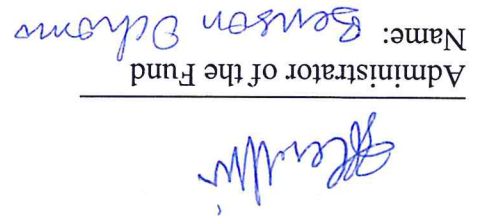 Administrator of the Fund
Name: Benson